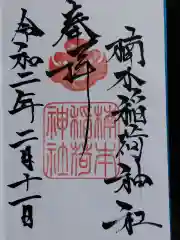 楠本稲荷神社
奉拝
令和二年二月十一日
楠本
稲荷
神社